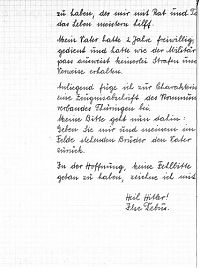 zu haben, der mir mit Rat und Ta
das Leben meistern hilft.
Mein Vater hatte 2 Jahre freiwillig
gedient und hatte wie der Militär
pass ausweist keinerlei Strafen und
Verweise erhalten.
Anliegend füge ich zur Charakteris
eine Zeugnisabschrift des
verbandes Thüringen bei.
Meine Bitte geht nun dahin:
Geben Sie mir und meinem im
Felde stehenden Bruder den Vater
zurück.
In der Hoffnung, keine Fehlbitte
getan zu haben, zeichne ich mit
Heil Hitler!